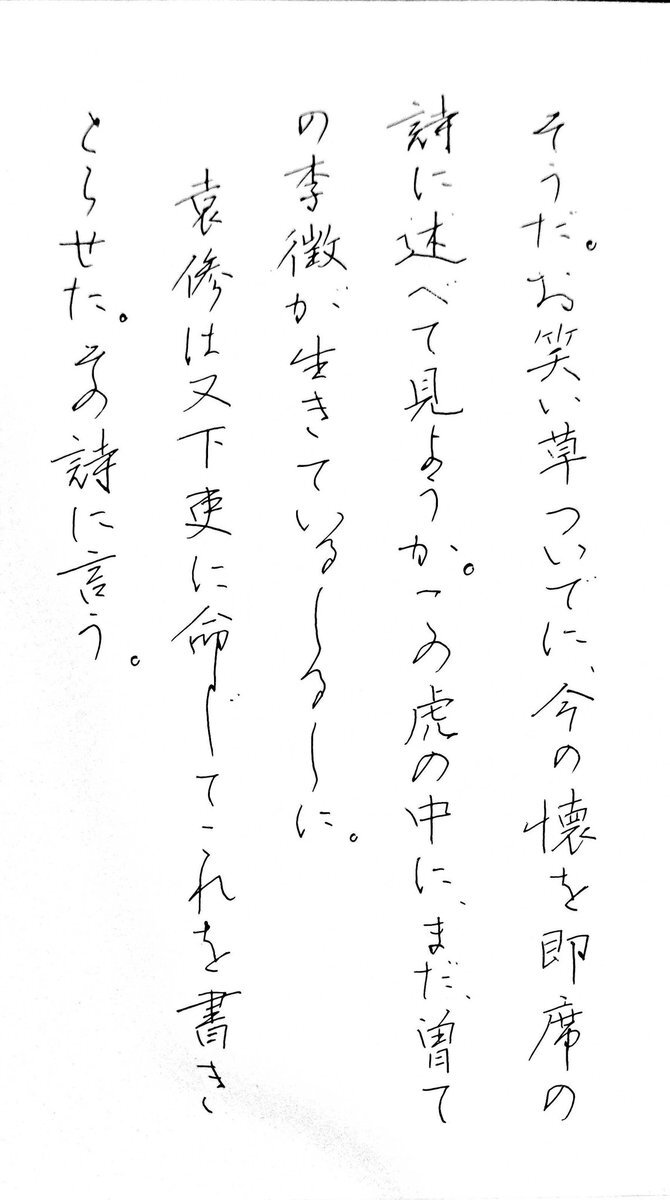 そうだ。お笑い草ついでに、今の懐を即席の
詩に述べて見ようか。この虎の中に、まだ、曽て
の李徴が生きているしるしに。
袁傪は又下吏に命じてこれを書き
とらせた。その詩に言う。